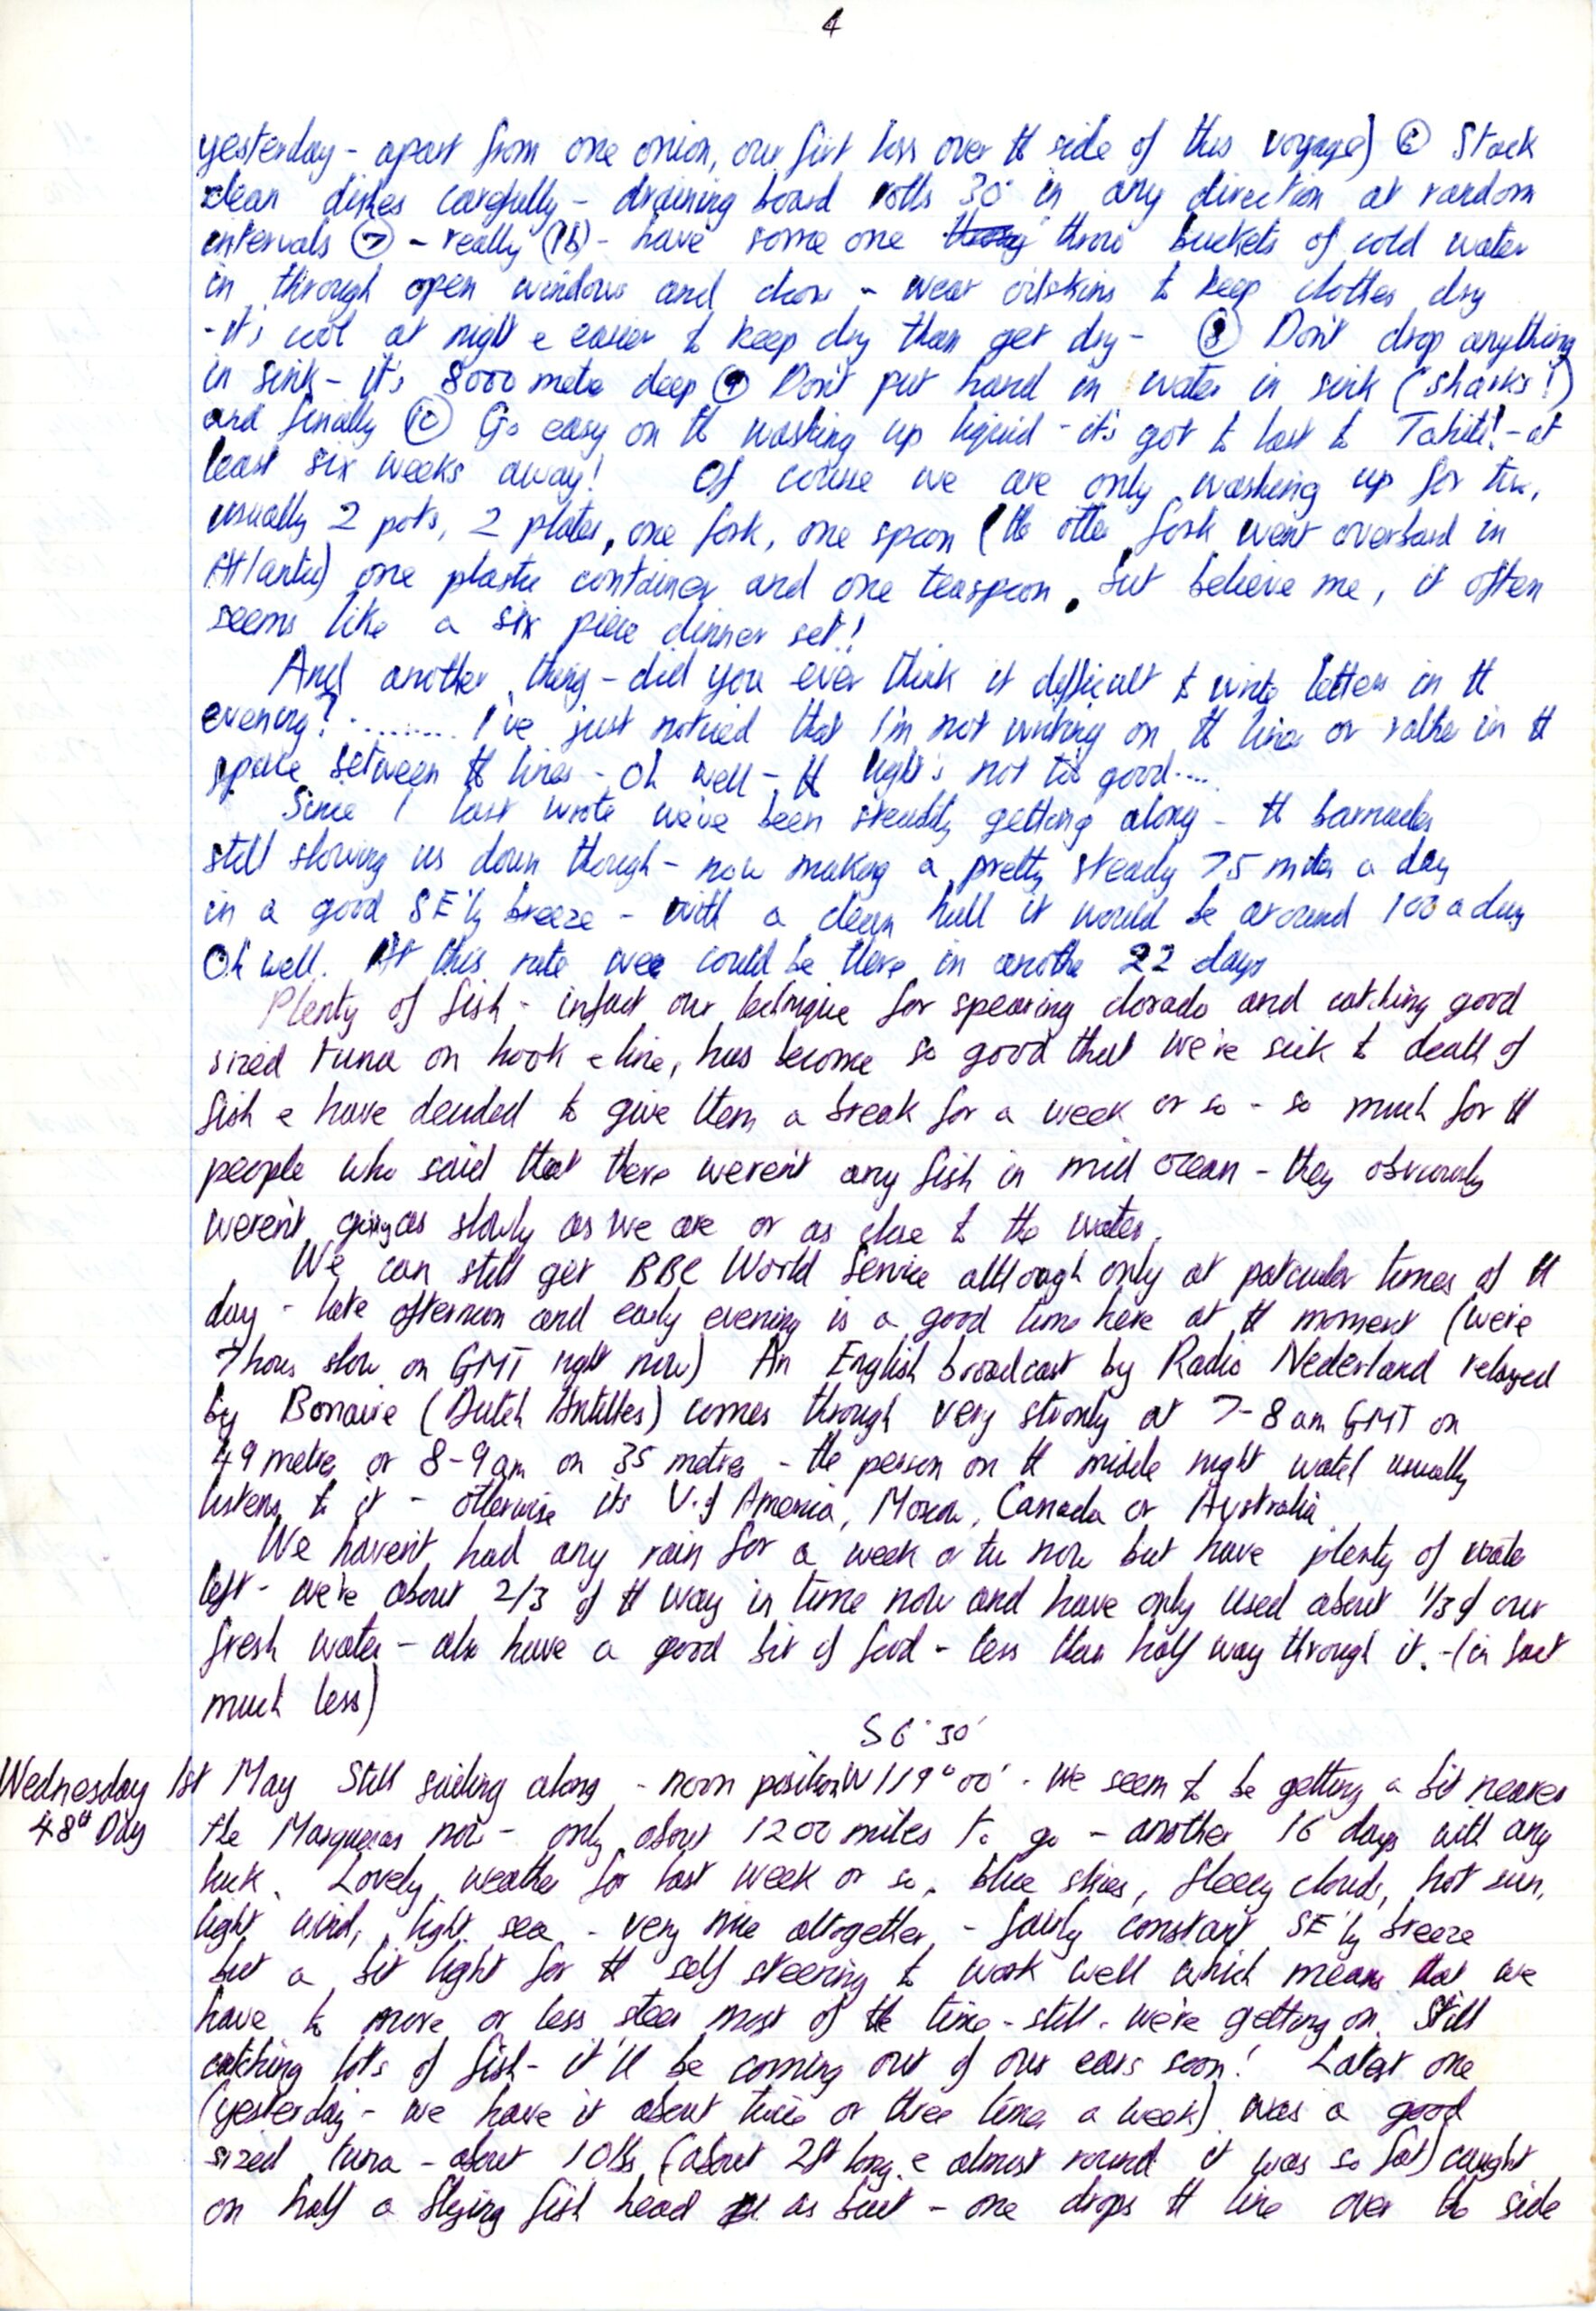 4
yesterday - apart from one onion, our first loss over tt side of this voyage) ⑥ Stack
clean dishes carefully - draining board rolls 30° in any direction at random
intervals ⑦ - really (1b) - have some one throw buckets of cold water
in through open windows and door - wear oilskins to keep clothes dry
- it's cool at night e easier to keep dry than get dry - ⑧ Don't drop anything
in sink - it's 8000 metre deep ⑨ Don't put hand in water in sink (sharks!)
and finally ⑩ Go easy on tt washing up liquid - it's got to last to Tahiti! - at
least six weeks away! Of course we are only washing up for two,
usually 2 pots, 2 plates, one fork, one spoon (the other fork went overboard in
Atlantic) one plastic container and one teaspoon. but believe me, it often
seems like a six piece dinner set!
And another thing - did you ever think it difficult to write letters in tt
evening? ......... I've just noticed that I'm not writing on tt lines or rather in tt
space between tt lines - Oh well - tt light's not too good....
Since I last wrote we've been steadily getting along - tt barnacles
still slowing us down though - now making a pretty steady 75 miles a day
in a good SE'ly breeze - with a clean hull it would be around 100 a day
Oh well. At this rate wee could be there in anothe 22 days
Plenty of fish - infact our technique for spearing dorado and catching good
sized tuna on hook e line, has become so good that we're sick to death of
fish e have decided to give them a break for a week or so - so much for tt
people who said that there weren't any fish in mid ocean - they obviously
weren't going as slowly as we are or as close to the water.
We can still get BBC World Service although only at paticular times of tt
day - late afternoon and early evening is a good time here at tt moment (we're
7 hours slow on GMT right now) An English broadcast by Radio Nederland relayed
by Bonaire (Dutch Antilles) comes through very strongly at 7-8 am GMT on
49 metres or 8-9 am on 35 metres - the person on tt middle night watch usually
listens to it - otherwise its V. of America, Moscow, Canada or Australia
We haven't had any rain for a week or two now but have plenty of water
left - we're about 2/3 of tt way in time now and have only used about 1/3 of our
fresh water - also have a good bit of food - less than half way through it. - (in fact
much less)
S 6° 30'
Wednesday 1st May Still sailing along - noon position W 119° 00' - We seem to be getting a bit nearer
48th Day the Marquesas now - only about 1200 miles to go - another 16 days with any
luck. Lovely weather for last week or so. blue skies, fleecy clouds, hot sun,
light wind, light sea - very nice altogether - fairly constant SE'ly breeze
but a bit light for tt self steering to work well which means that we
have to more or less steer most of tt time - still - we're getting on. Still
catching lots of fish - it'll be coming out of our ears soon! Latest one
(yesterday - we have it about twice or three times a week) was a good
sized tuna - about 10lbs (about 2ft long e almost round it was so fat) caught
on half a flying fish head as bait - one drops tt line over the side